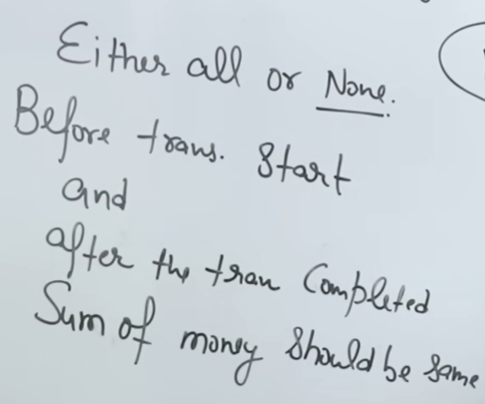 Either all or None.
Before trans. Start
and
after the tran Completed
Sum of money should be same